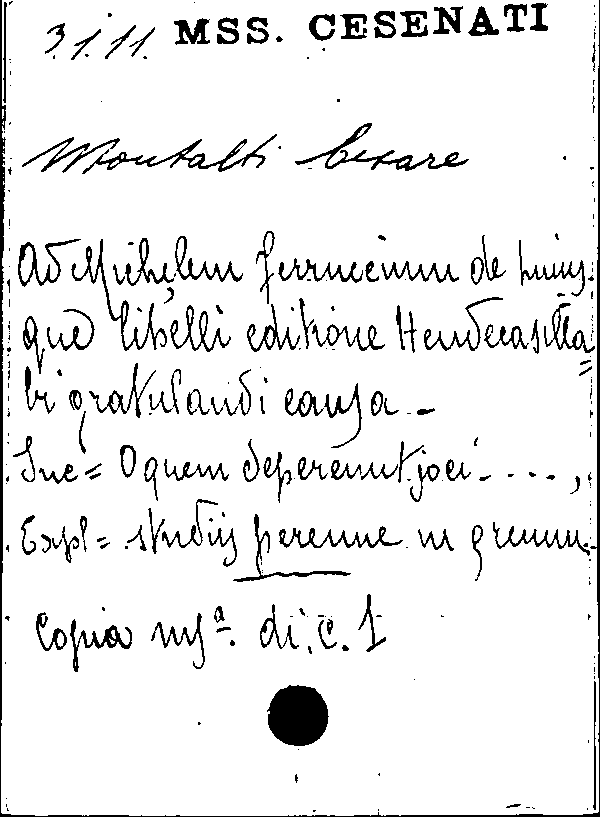 3.1.11. MSS. CESENATI
Montalti Cesare
Ad Michelem Ferruccium de huius
que libelli editione Hendecasilla=
bi gratulandi causa -
Inc = O quem depereunt joci - . . . ,
Expl = studiis perenne in gremium.
Copia msª. di c. 1